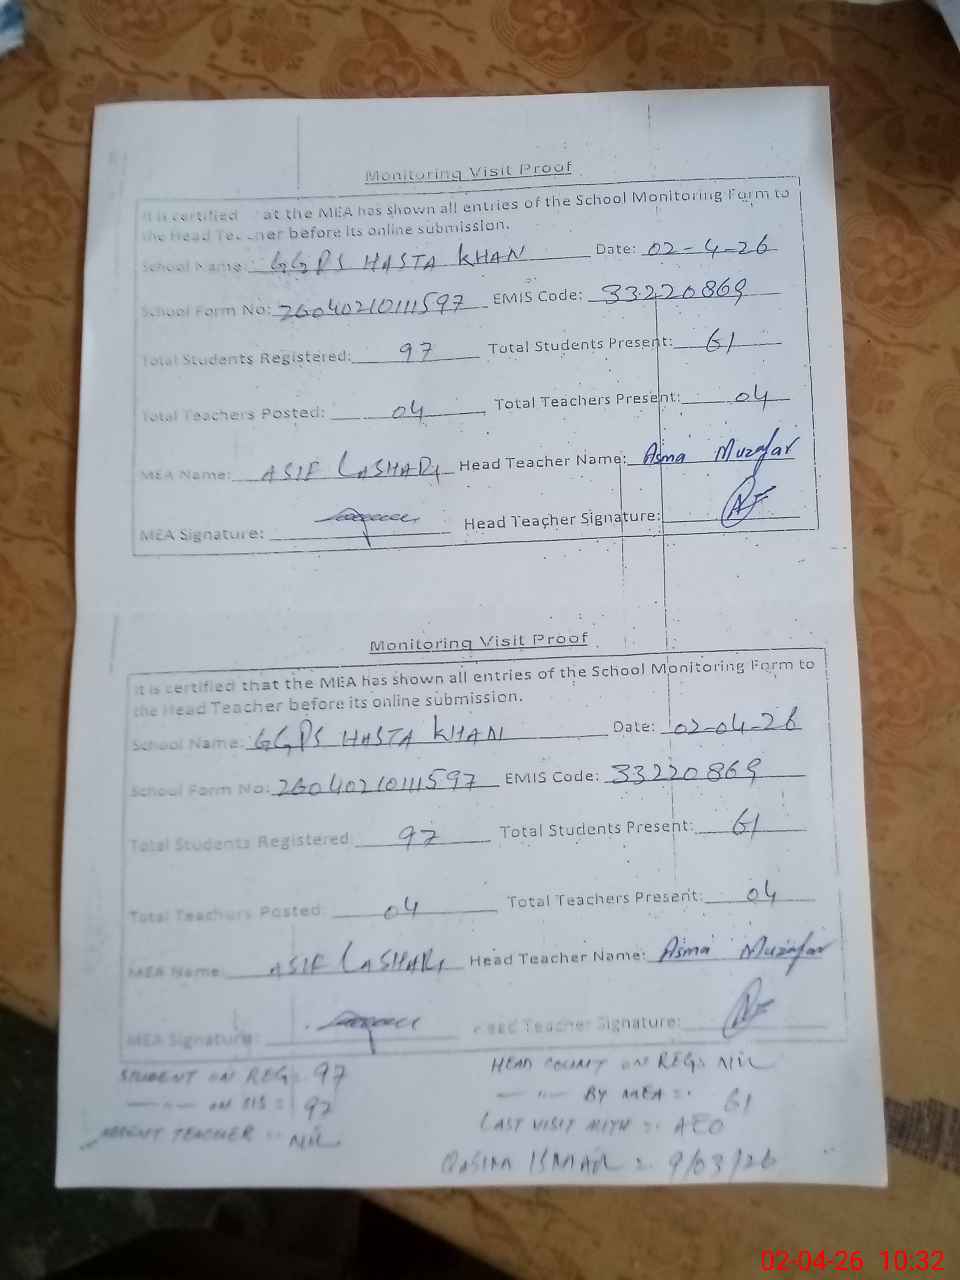 Monitoring Visit Proof
It is certified that the MEA has shown all entries of the School Monitoring Form to
the Head Teacher before its online submission.
School Name: GGPS HASTA KHAN Date: 02-4-26
School Form No: 26040210111597 EMIS Code: 33220869
Total Students Registered: 97 Total Students Present: 61
Total Teachers Posted: 04 Total Teachers Present: 04
MEA Name: ASIF LASHARI Head Teacher Name: Asma Muzafar
MEA Signature: Head Teacher Signature:
Monitoring Visit Proof
It is certified that the MEA has shown all entries of the School Monitoring Form to
the Head Teacher before its online submission.
School Name: GGPS HASTA KHAN Date: 02-04-26
School Form No: 26040210111597 EMIS Code: 33220869
Total Students Registered: 97 Total Students Present: 61
Total Teachers Posted: 04 Total Teachers Present: 04
MEA Name ASIF LASHARI Head Teacher Name: Asma Muzafar
MEA Signature: Head Teacher Signature:
STUDENT ON REG: 97 HEAD COUNT ON REG: NIL
—〃— ON SIS = 97 —〃— BY MEA = 61
ABSENT TEACHER = NIL LAST VISIT WITH = AEO
QASIM ISMAIL = 9/03/26
02-04-26 10:32